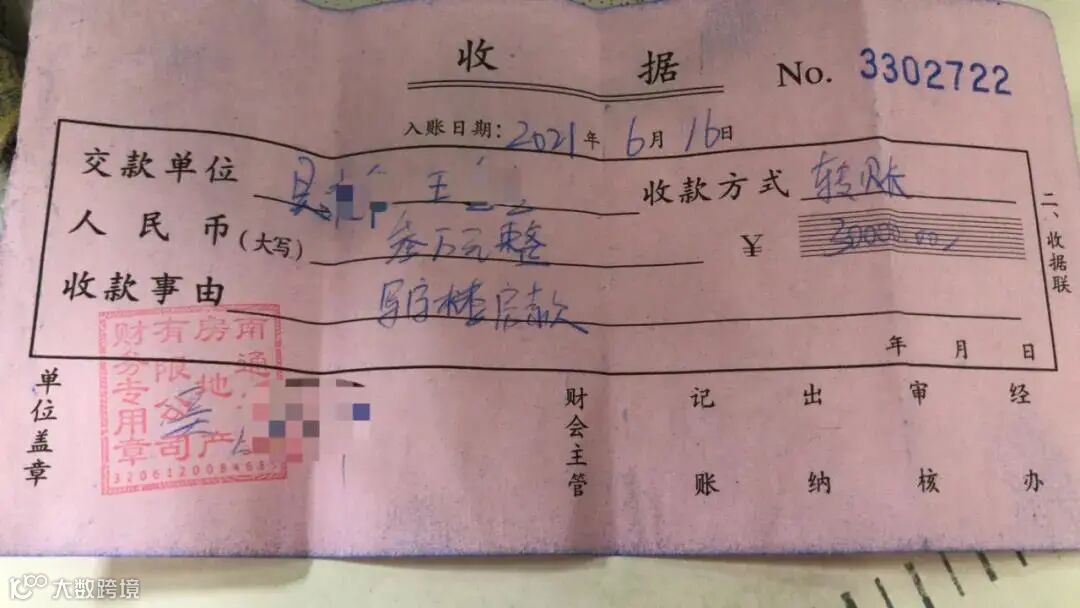 收 据 No. 3302722
入账日期：2021年 6月 16日
交款单位 吴 王 收款方式 转账
人民币（大写） 叁万元整 ¥ 30000.00
收款事由 写字楼房款
年 月 日
二、收据联
单位盖章 财会主管 记账 出纳 审核 经办
南通
房地产
有限公司
财务专用章
3206120084685
吴
大数跨境